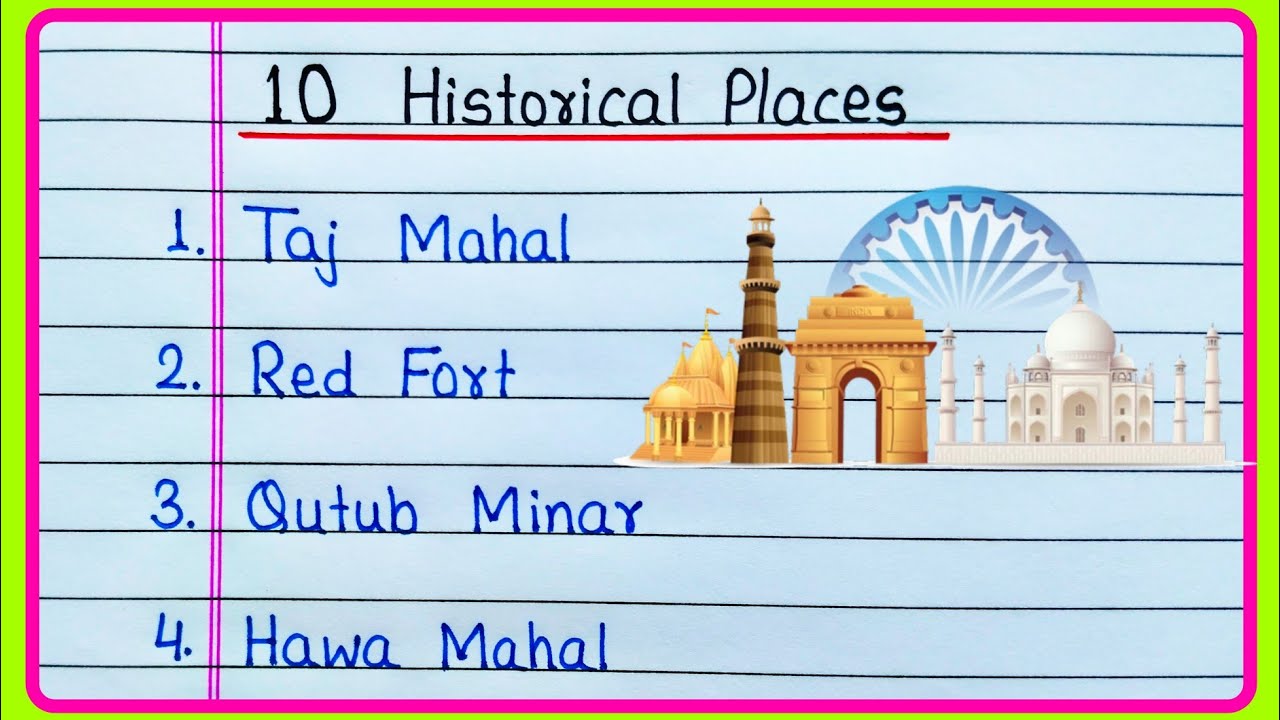 10 Historical Places
1. Taj Mahal
INDIA
2. Red Fort
3. Qutub Minar
4. Hawa Mahal